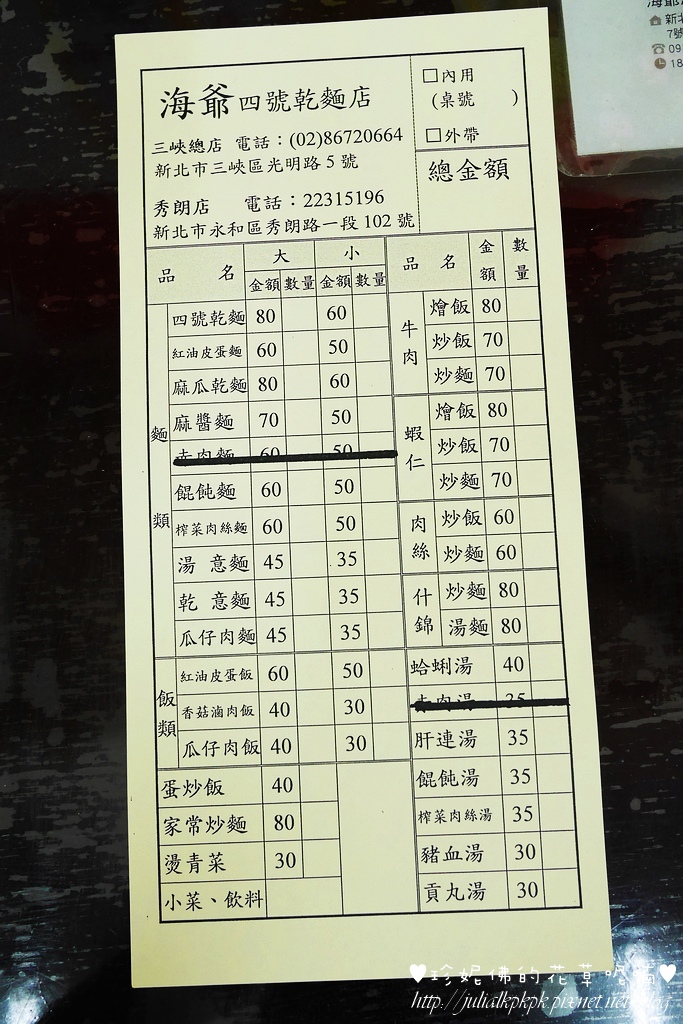 海爺四號乾麵店
三峽總店 電話：(02)86720664
新北市三峽區光明路5號
秀朗店 電話：22315196
新北市永和區秀朗路一段102號
□內用
(桌號 )
□外帶
總金額
品名 大 小
金額 數量 金額 數量
麵類
四號乾麵 80 60
紅油皮蛋麵 60 50
麻瓜乾麵 80 60
麻醬麵 70 50
赤肉麵 60 50
餛飩麵 60 50
榨菜肉絲麵 60 50
湯 意麵 45 35
乾 意麵 45 35
瓜仔肉麵 45 35
飯類
紅油皮蛋飯 60 50
香菇滷肉飯 40 30
瓜仔肉飯 40 30
蛋炒飯 40
家常炒麵 80
燙青菜 30
小菜、飲料
品名 金額 數量
牛肉
燴飯 80
炒飯 70
炒麵 70
蝦仁
燴飯 80
炒飯 70
炒麵 70
肉絲
炒飯 60
炒麵 60
什錦
炒麵 80
湯麵 80
蛤蜊湯 40
赤肉湯 35
肝連湯 35
餛飩湯 35
榨菜肉絲湯 35
豬血湯 30
貢丸湯 30
新北
7號
09
18
♥珍妮佛的花草呢喃♥